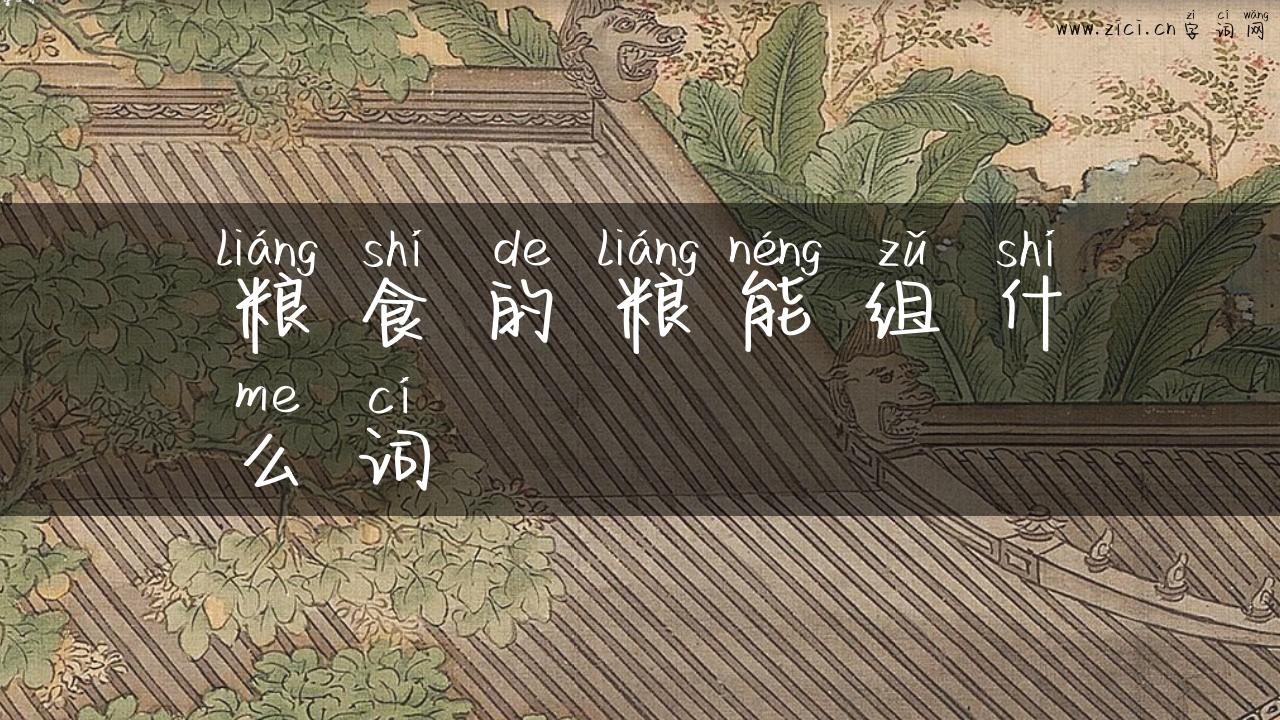 zì cí wǎng
www.zici.cn 字词网
liáng shí de liáng néng zǔ shí
粮食的粮能组什
me cí
么词